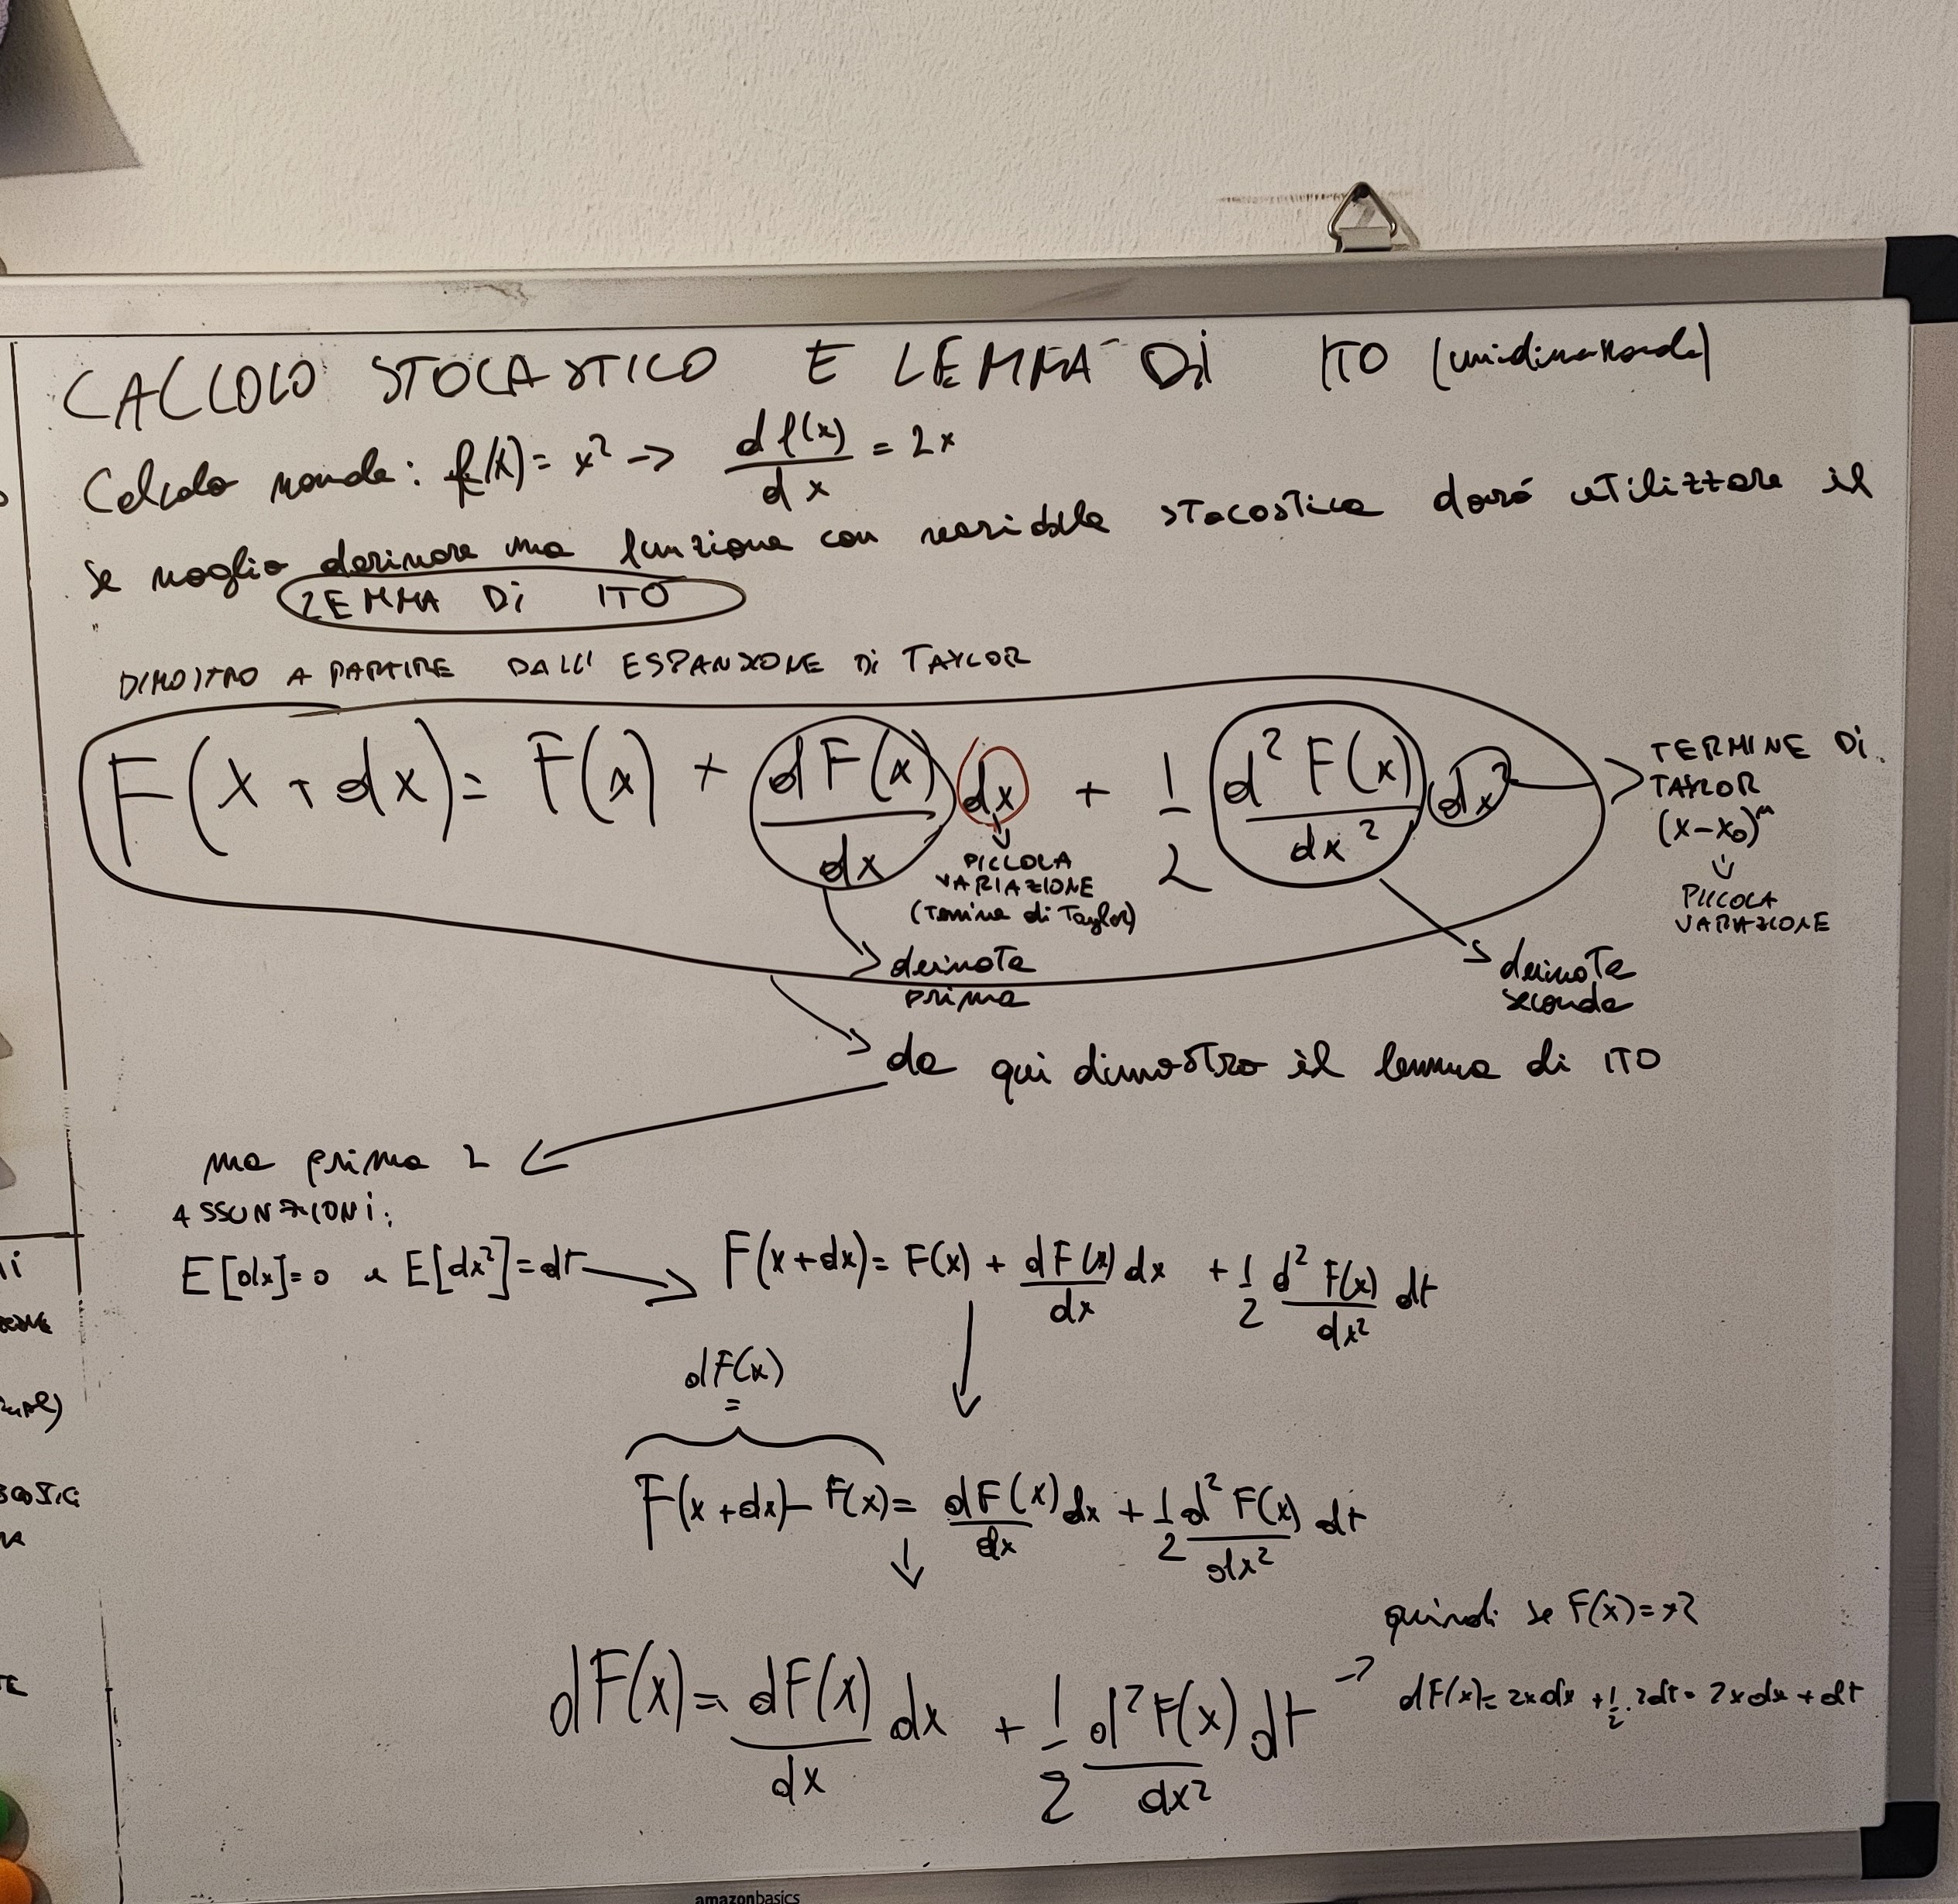 CALCOLO STOCASTICO E LEMMA DI ITO (unidimensionale)
Calcolo normale: f(x) = x² -> df(x)/dx = 2x
se voglio derivare una funzione con variabile stocastica dovró utilizzare il
LEMMA DI ITO
DIMOSTRO A PARTIRE DALL' ESPANSIONE DI TAYLOR
F(x + dx) = F(x) + dF(x)/dx dx + 1/2 d²F(x)/dx² dx²
TERMINE DI
TAYLOR
(x-x₀)ⁿ
PICCOLA
VARIAZIONE
PICCOLA
VARIAZIONE
(Termine di Taylor)
derivata
prima
derivata
seconda
da qui dimostro il lemma di ITO
ma prima 2
ASSUNZIONI:
E[dx]=0 e E[dx²]=dt -> F(x+dx) = F(x) + dF(x)/dx dx + 1/2 d²F(x)/dx² dt
dF(x)
=
F(x+dx) - F(x) = dF(x)/dx dx + 1/2 d²F(x)/dx² dt
quindi se F(x)=x2
dF(x) = dF(x)/dx dx + 1/2 d²F(x)/dx² dt ->
dF(x) = 2xdx + 1/2 · 2dt = 2xdx + dt
amazonbasics